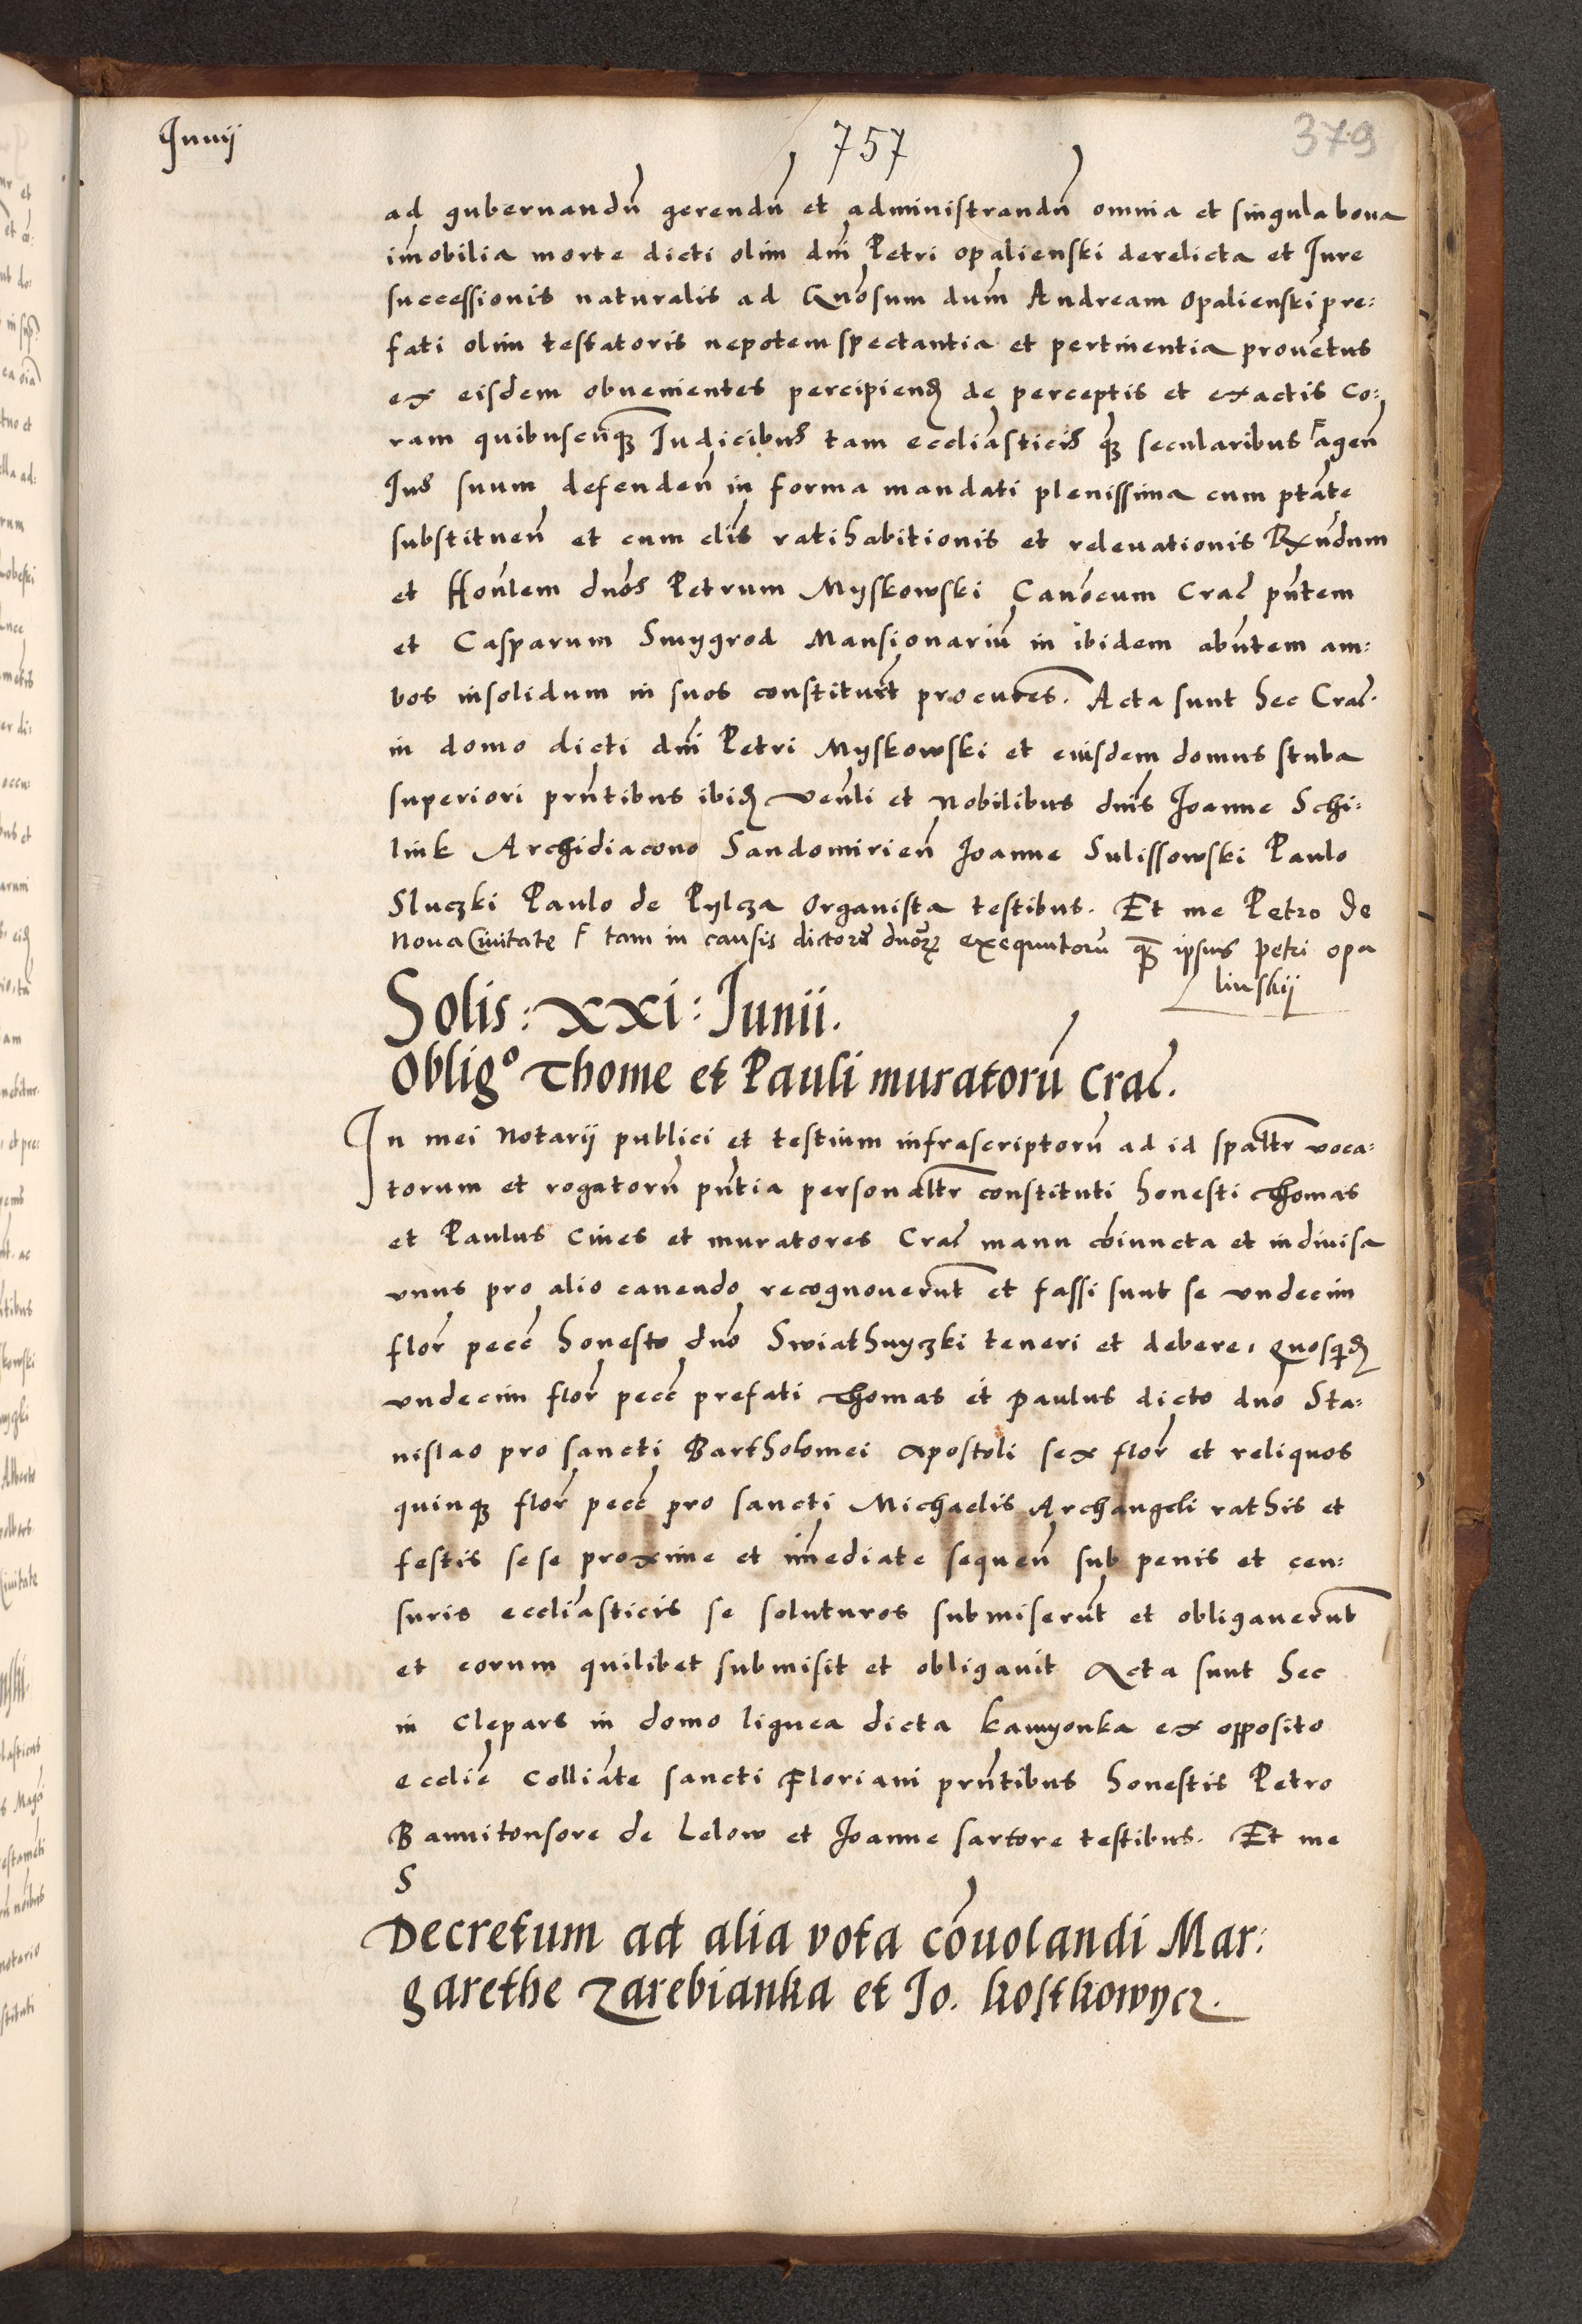 Junij
757
379
ad gubernandū gerendū et administrandū omnia et singula bona
im̄obilia morte dicti olim dnī Petri opalienski derelicta et Jure
successionis naturalis ad Gnōsum dnūm Andream opalienski pre:
fati olim testatoris nepotem spectantia et pertinentia prouētus
ex eisdem obuenientes percipiend de perceptis et exactis Co:
ram quibuscūq Judicibus tam eccliāsticis q̄ secularibus Γ agen̄
Jus suum defenden̄ in forma mandati plenissima cum ptāte
substituen̄ et cum clīs ratihabitionis et releuationis Rx̄undum
et Honlēm dnōs Petrum Myskowski Canōcum Crac̄ pn̄tem
et Casparum Smygrod Mansionariū in ibidem abn̄tem am:
bos insolidum in suos constituīt procur̄es. Acta sunt hec Crac̄.
in domo dicti dnī Petri Myskowski et eiusdem domus stuba
superiori prn̄tibus ibid Venl̄i et Nobilibus dnīs Joanne Schi:
link Archidiacono Sandomirien̄ Joanne Sulissowski Paulo
Sluczki Paulo de Pylcza Organista testibus. Et me Petro de
Noua Ciuitate Γ tam in causis dictorū dnōrꝝ exequutorū q̄ ipsius Petri opa
linskij
Solis: xxi: Junii.
Oblig° Thome et Pauli muratorū Crac̄.
In mei Notarij publici et testium infrascriptorū ad id spal̄tr voca:
torum et rogatorū pn̄tia personal̄tr constituti honesti Thomas
et Paulus Ciues et muratores Crac̄ manu cōiuncta et indiuisa
vnus pro alio cauendo recognouerūt et fassi sunt se vndecim
flor̄ pecc̄ honesto dnō Swiathnyczki teneri et debere, Quosqd
vndecim flor̄ pecc̄ prefati Thomas et Paulus dicto dnō Sta:
nislao pro sancti Bartholomei Apostoli sex flor̄ et reliquos
quinq flor̄ pecc̄ pro sancti Michaelis Archangeli rathis et
festis sese proxime et im̄ediate sequen̄ sub penis et cen:
suris eccliāsticis se soluturos submiserūt et obligauerūt
et eorum quilibet submisit et obligauit Acta sunt hec
in Clepars in domo lignea dicta kamyonka ex opposito
ecclīe Colliāte sancti Floriani prn̄tibus honestis Petro
Bannitonsore de Lelow et Joanne sartore testibus. Et me
S
Decretum ad alia vota cōuolandi Mar:
garethe Zarebianka et Jo. kostkowycz.